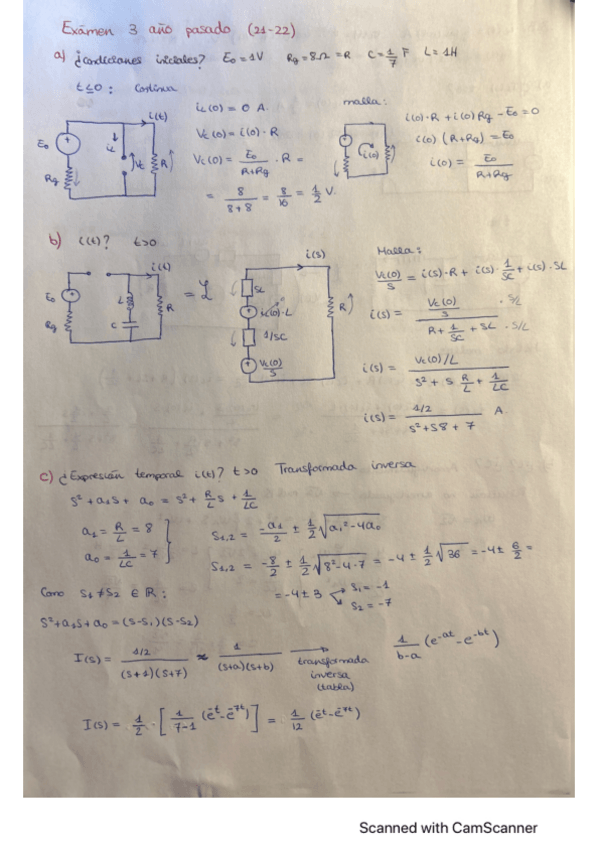 Exámen 3 año pasado (21-22)
a) ¿condiciones iniciales? E₀=1V Rg=8Ω=R C=1/7 F L=1H
t≤0: Continua
i(t)
E₀
Rg
iL
Vc
R
iL(0) = 0 A.
Vc(0) = i(0)·R
Vc(0) = E₀/(R+Rg) · R =
= 8/(8+8) = 8/16 = 1/2 V.
malla:
i(0)
i(0)·R + i(0)Rg - E₀ = 0
i(0) (R+Rg) = E₀
i(0) = E₀/(R+Rg)
b) i(t)? t>0
i(t)
E₀
Rg
L
C
R
= ℒ
i(s)
SL
iL(0)·L
1/SC
Vc(0)/S
R
Malla:
Vc(0)/S = i(s)·R + i(s)·1/SC + i(s)·SL
i(s) = (Vc(0)/S)/(R + 1/SC + SL) · S/L · S/L
i(s) = (Vc(0)/L)/(S² + S R/L + 1/LC)
i(s) = (1/2)/(S²+S8+7) A.
c) ¿Expresión temporal i(t)? t>0 Transformada inversa
S² + a₁S + a₀ = S² + R/L S + 1/LC
a₁ = R/L = 8
a₀ = 1/LC = 7
S₁,₂ = -a₁/2 ± 1/2 √(a₁²-4a₀)
S₁,₂ = -8/2 ± 1/2 √(8²-4·7) = -4 ± 1/2 √36 = -4 ± 6/2 =
= -4 ± 3
S₁ = -1
S₂ = -7
Como S₁ ≠ S₂ ∈ ℝ:
S²+a₁S+a₀ = (S-S₁)(S-S₂)
I(s) = (1/2)/((S+1)(S+7)) ≈ 1/((S+a)(S+b)) → transformada inversa (tabla) 1/(b-a) (e^-at - e^-bt)
I(s) = 1/2 · [1/(7-1) (e^-t - e^-7t)] = 1/12 (e^-t - e^-7t)
Scanned with CamScanner